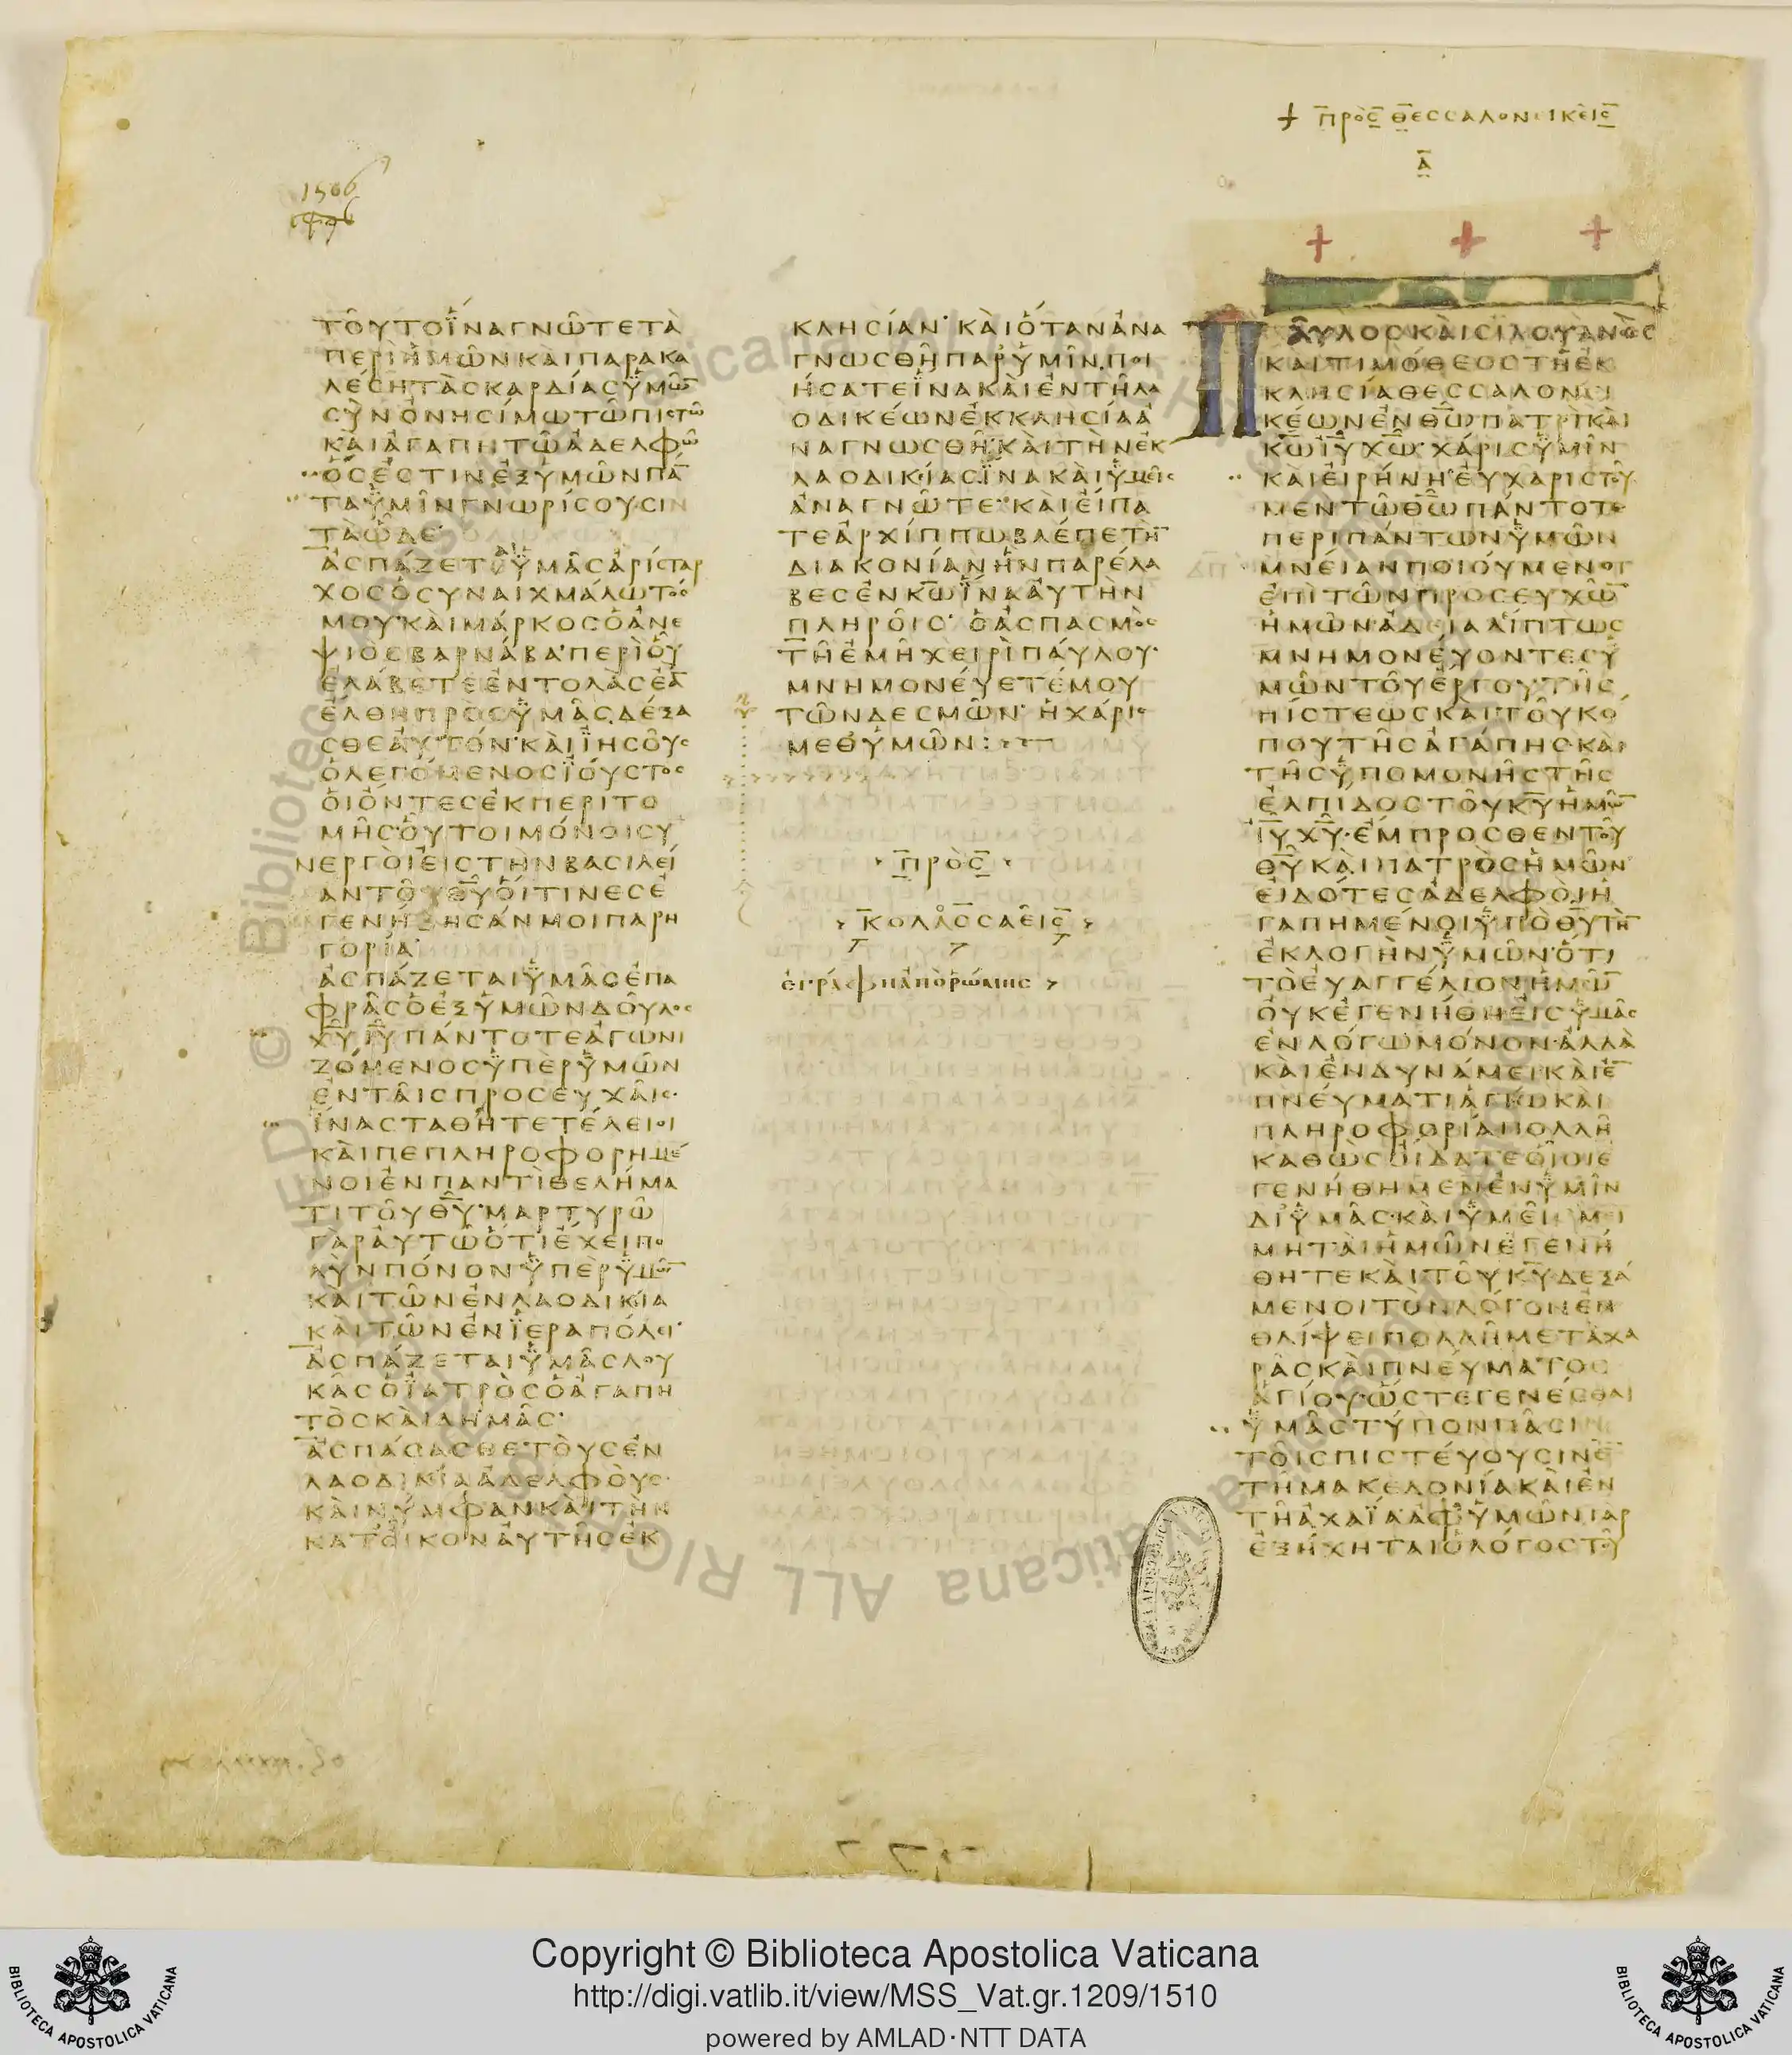 + ΠΡΟϹ ΘΕϹϹΑΛΟΝΙΚΕΙϹ
Α
1506
ΤΟΥΤΟΪΝΑΓΝΩΤΕΤΑ
ΠΕΡΙΗΜΩΝΚΑΙΠΑΡΑΚΑ
ΛΕϹΗΤΑϹΚΑΡΔΙΑϹΫΜΩ̅
ϹΥΝΟΝΗϹΙΜΩΤΩΠΙϹΤΩ
ΚΑΙΑΓΑΠΗΤΩΑΔΕΛΦΩ
ΟϹΕϹΤΙΝΕΞΫΜΩΝΠΑ̅
ΤΑΫΜΙΝΓΝΩΡΙϹΟΥϹΙΝ
ΤΑΩΔΕ·
ΑϹΠΑΖΕΤΑΙΫΜΑϹΑΡΙϹΤΑΡ
ΧΟϹΟϹΥΝΑΙΧΜΑΛΩΤΟϹ
ΜΟΥ·ΚΑΙΜΑΡΚΟϹΟΑΝΕ
ΨΙΟϹΒΑΡΝΑΒΑ·ΠΕΡΙΟΥ
ΕΛΑΒΕΤΕΕΝΤΟΛΑϹΕΑ̅
ΕΛΘΗΠΡΟϹΫΜΑϹΔΕΞΑ
ϹΘΕΑΥΤΟΝ·ΚΑΙΪΗϹΟΥϹ
ΟΛΕΓΟΜΕΝΟϹΪΟΥϹΤΟϹ
ΟΙΟΝΤΕϹΕΚΠΕΡΙΤΟ
ΜΗϹ·ΟΥΤΟΙΜΟΝΟΙϹΥ
ΝΕΡΓΟΙΕΙϹΤΗΝΒΑϹΙΛΕΙ
ΑΝΤΟΥΘ̅Υ̅ΟΙΤΙΝΕϹΕ
ΓΕΝΗΘΗϹΑΝΜΟΙΠΑΡΗ
ΓΟΡΙΑ·
ΑϹΠΑΖΕΤΑΙΫΜΑϹΕΠΑ
ΦΡΑϹΟΕΞΫΜΩΝΔΟΥΛΟϹ
Χ̅Υ̅Ι̅Υ̅ΠΑΝΤΟΤΕΑΓΩΝΙ
ΖΟΜΕΝΟϹΫΠΕΡΫΜΩΝ
ΕΝΤΑΙϹΠΡΟϹΕΥΧΑΙϹ·
ΪΝΑϹΤΑΘΗΤΕΤΕΛΕΙΟΙ
ΚΑΙΠΕΠΛΗΡΟΦΟΡΗΜΕ
ΝΟΙΕΝΠΑΝΤΙΘΕΛΗΜΑ
ΤΙΤΟΥΘ̅Υ̅·ΜΑΡΤΥΡΩ
ΓΑΡΑΥΤΩΟΤΙΕΧΕΙΠΟ
ΛΥΝΠΟΝΟΝΫΠΕΡΫΜΩ̅
ΚΑΙΤΩΝΕΝΛΑΟΔΙΚΙΑ
ΚΑΙΤΩΝΕΝΪΕΡΑΠΟΛΕΙ·
ΑϹΠΑΖΕΤΑΙΫΜΑϹΛΟΥ
ΚΑϹΟΪΑΤΡΟϹΟΑΓΑΠΗ
ΤΟϹΚΑΙΔΗΜΑϹ·
ΑϹΠΑϹΑϹΘΕΤΟΥϹΕΝ
ΛΑΟΔΙΚΙΑΑΔΕΛΦΟΥϹ·
ΚΑΙΝΥΜΦΑΝΚΑΙΤΗΝ
ΚΑΤΟΙΚΟΝΑΥΤΗϹΕΚ
ΚΛΗϹΙΑΝ·ΚΑΙΟΤΑΝΑΝΑ
ΓΝΩϹΘΗΠΑΡΫΜΙΝΠΟΙ
ΗϹΑΤΕΪΝΑΚΑΙΕΝΤΗΛΑ
ΟΔΙΚΕΩΝΕΚΚΛΗϹΙΑΑ
ΝΑΓΝΩϹΘΗ·ΚΑΙΤΗΝΕΚ
ΛΑΟΔΙΚΙΑϹΪΝΑΚΑΙΫΜΕΙϹ
ΑΝΑΓΝΩΤΕ·ΚΑΙΕΙΠΑ
ΤΕΑΡΧΙΠΠΩΒΛΕΠΕΤΗ̅
ΔΙΑΚΟΝΙΑΝΗΝΠΑΡΕΛΑ
ΒΕϹΕΝΚ̅Ω̅ΪΝΑΑΥΤΗΝ
ΠΛΗΡΟΙϹ·ΟΑϹΠΑϹΜΟϹ
ΤΗΕΜΗΧΕΙΡΙΠΑΥΛΟΥ·
ΜΝΗΜΟΝΕΥΕΤΕΜΟΥ
ΤΩΝΔΕϹΜΩΝ·ΗΧΑΡΙϹ
ΜΕΘΫΜΩΝ:
ΠΡΟϹ
ΚΟΛΑϹϹΑΕΙϹ
ΕΓΡΑΦΗΑΠΟΡΩΜΗϹ
ΠΑΥΛΟϹΚΑΙϹΙΛΟΥΑΝΟϹ
ΚΑΙΤΙΜΟΘΕΟϹΤΗΕΚ
ΚΛΗϹΙΑΘΕϹϹΑΛΟΝΙ
ΚΕΩΝΕΝΘ̅Ω̅ΠΑΤΡΙΚΑΙ
Κ̅Ω̅Ι̅Υ̅Χ̅Ω̅·ΧΑΡΙϹΫΜΙΝ
ΚΑΙΕΙΡΗΝΗ·ΕΥΧΑΡΙϹΤΟΥ
ΜΕΝΤΩΘ̅Ω̅ΠΑΝΤΟΤΕ
ΠΕΡΙΠΑΝΤΩΝΫΜΩΝ
ΜΝΕΙΑΝΠΟΙΟΥΜΕΝΟΙ
ΕΠΙΤΩΝΠΡΟϹΕΥΧΩ̅
ΗΜΩΝ·ΑΔΙΑΛΙΠΤΩϹ
ΜΝΗΜΟΝΕΥΟΝΤΕϹΫ
ΜΩΝΤΟΥΕΡΓΟΥΤΗϹ
ΠΙϹΤΕΩϹΚΑΙΤΟΥΚΟ
ΠΟΥΤΗϹΑΓΑΠΗϹΚΑΙ
ΤΗϹΫΠΟΜΟΝΗϹΤΗϹ
ΕΛΠΙΔΟϹΤΟΥΚ̅Υ̅ΗΜΩ̅
Ι̅Υ̅Χ̅Υ̅·ΕΜΠΡΟϹΘΕΝΤΟΥ
Θ̅Υ̅ΚΑΙΠΑΤΡΟϹΗΜΩΝ
ΕΙΔΟΤΕϹΑΔΕΛΦΟΙΗ
ΓΑΠΗΜΕΝΟΙΫΠΟΘ̅Υ̅ΤΗ̅
ΕΚΛΟΓΗΝΫΜΩΝ·ΟΤΙ
ΤΟΕΥΑΓΓΕΛΙΟΝΗΜΩ̅
ΟΥΚΕΓΕΝΗΘΗΕΙϹΫΜΑϹ
ΕΝΛΟΓΩΜΟΝΟΝ·ΑΛΛΑ
ΚΑΙΕΝΔΥΝΑΜΕΙΚΑΙΕ̅
ΠΝΕΥΜΑΤΙΑΓΙΩΚΑΙ
ΠΛΗΡΟΦΟΡΙΑΠΟΛΛΗ
ΚΑΘΩϹΟΙΔΑΤΕΟΙΟΙΕ
ΓΕΝΗΘΗΜΕΝΕΝΫΜΙΝ
ΔΙΫΜΑϹ·ΚΑΙΫΜΕΙϹΜΙ
ΜΗΤΑΙΗΜΩΝΕΓΕΝΗ
ΘΗΤΕΚΑΙΤΟΥΚ̅Υ̅ΔΕΞΑ
ΜΕΝΟΙΤΟΝΛΟΓΟΝΕΝ
ΘΛΙΨΕΙΠΟΛΛΗΜΕΤΑΧΑ
ΡΑϹΚΑΙΠΝΕΥΜΑΤΟϹ
ΑΓΙΟΥ·ΩϹΤΕΓΕΝΕϹΘΑΙ
ΫΜΑϹΤΥΠΟΝΠΑϹΙΝ
ΤΟΙϹΠΙϹΤΕΥΟΥϹΙΝΕ̅
ΤΗΜΑΚΕΔΟΝΙΑΚΑΙΕΝ
ΤΗΑΧΑΪΑΑΦΫΜΩΝΓΑΡ
ΕΞΗΧΗΤΑΙΟΛΟΓΟϹΤΟΥ
Copyright © Biblioteca Apostolica Vaticana
http://digi.vatlib.it/view/MSS_Vat.gr.1209/1510
powered by AMLAD·NTT DATA
BIBLIOTECA APOSTOLICA VATICANA
BIBLIOTECA APOSTOLICA VATICANA